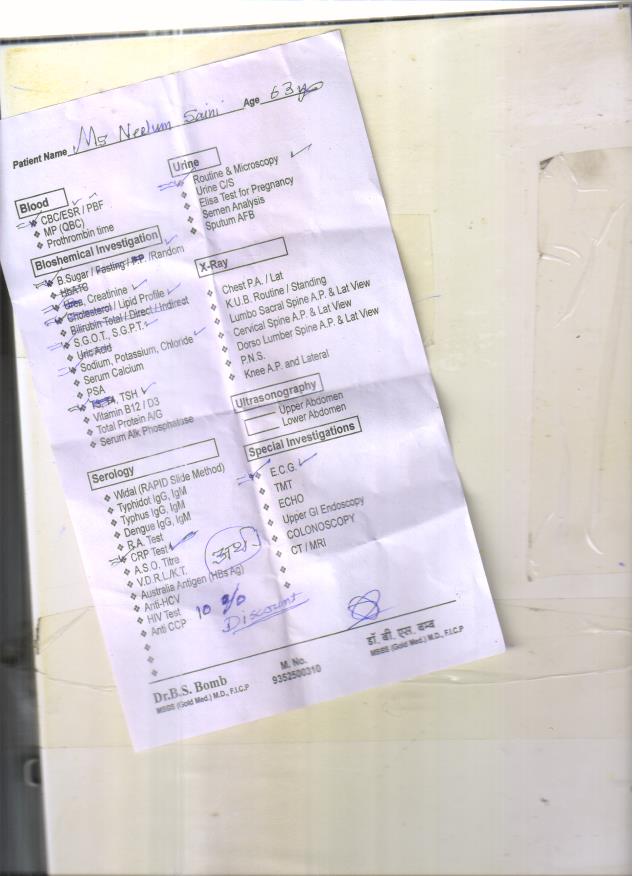 Patient Name Ms Neelum Saini Age 63y
Blood
CBC/ESR / PBF
MP (QBC)
Prothrombin time
Bioshemical Investigation
B.Sugar / Fasting / P.P. /Random
HbA1C
Urea, Creatinine
Cholesterol / Lipid Profile
Bilirubin Total / Direct / Indirect
S.G.O.T., S.G.P.T.
Uric Acid
Sodium, Potassium, Chloride
Serum Calcium
PSA
T3, T4, TSH
Vitamin B12 / D3
Total Protein A/G
Serum Alk Phosphatase
Serology
Widal (RAPID Slide Method)
Typhidot IgG, IgM
Typhus IgG, IgM
Dengue IgG, IgM
R.A. Test
CRP Test
A.S.O. Titre
V.D.R.L/K.T.
Australia Antigen (HBs Ag)
Anti-HCV
HIV Test
Anti CCP
Urine
Routine & Microscopy
Urine C/S
Elisa Test for Pregnancy
Semen Analysis
Sputum AFB
X-Ray
Chest P.A. / Lat
K.U.B. Routine / Standing
Lumbo Sacral Spine A.P. & Lat View
Cervical Spine A.P. & Lat View
Dorso Lumber Spine A.P. & Lat View
P.N.S.
Knee A.P. and Lateral
Ultrasonography
Upper Abdomen
Lower Abdomen
Special Investigations
E.C.G.
TMT
ECHO
Upper GI Endoscopy
COLONOSCOPY
CT / MRI
10 %
Discount
Dr.B.S. Bomb
MBBS (Gold Med.) M.D., F.I.C.P
M. No.
9352500310
डॉ. बी. एस. बम्ब
MBBS (Gold Med.) M.D., F.I.C.P